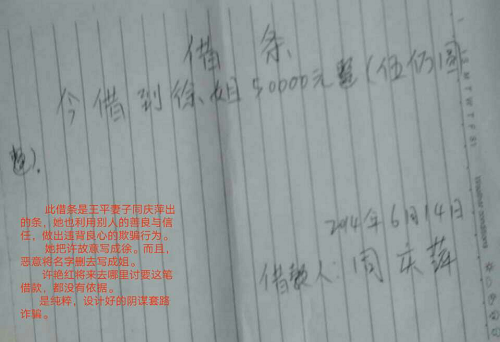 借条
今借到徐姐50000元整(伍仟圆
整).
2014年6月14日
借款人:周庆萍
此借条是王平妻子同庆萍出
的条,她也利用别人的善良与信
任,做出违背良心的欺骗行为。
她把许故意写成徐。而且,
恶意将名字删去写成姐。
许艳红将来去哪里讨要这笔
借款,都没有依据。
是纯粹,设计好的阴谋套路
诈骗。